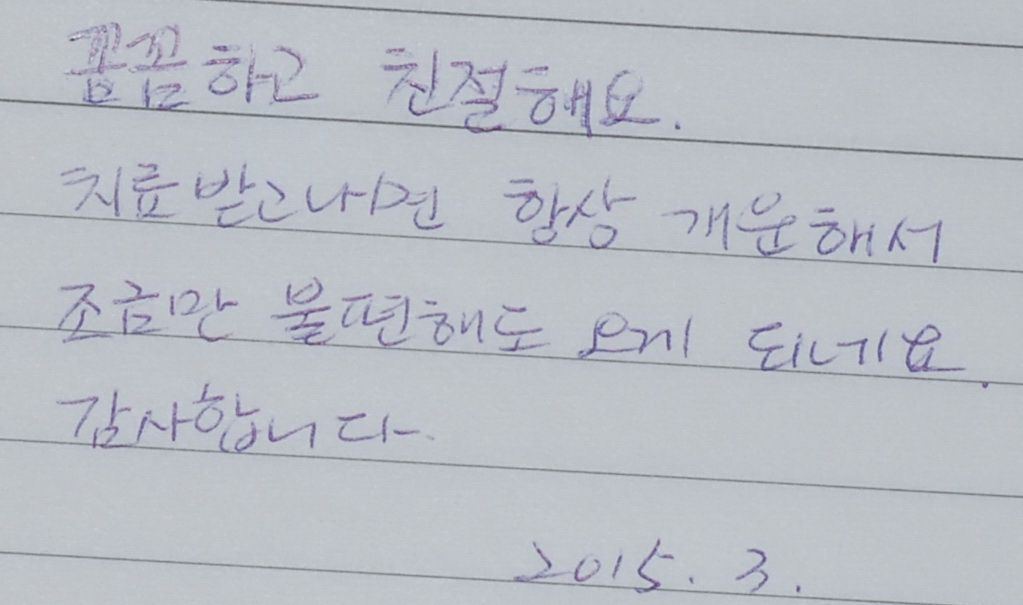 꼼꼼하고 친절해요.
치료받고나면 항상 개운해서
조금만 불편해도 오게 되네요.
감사합니다.
2015. 3.